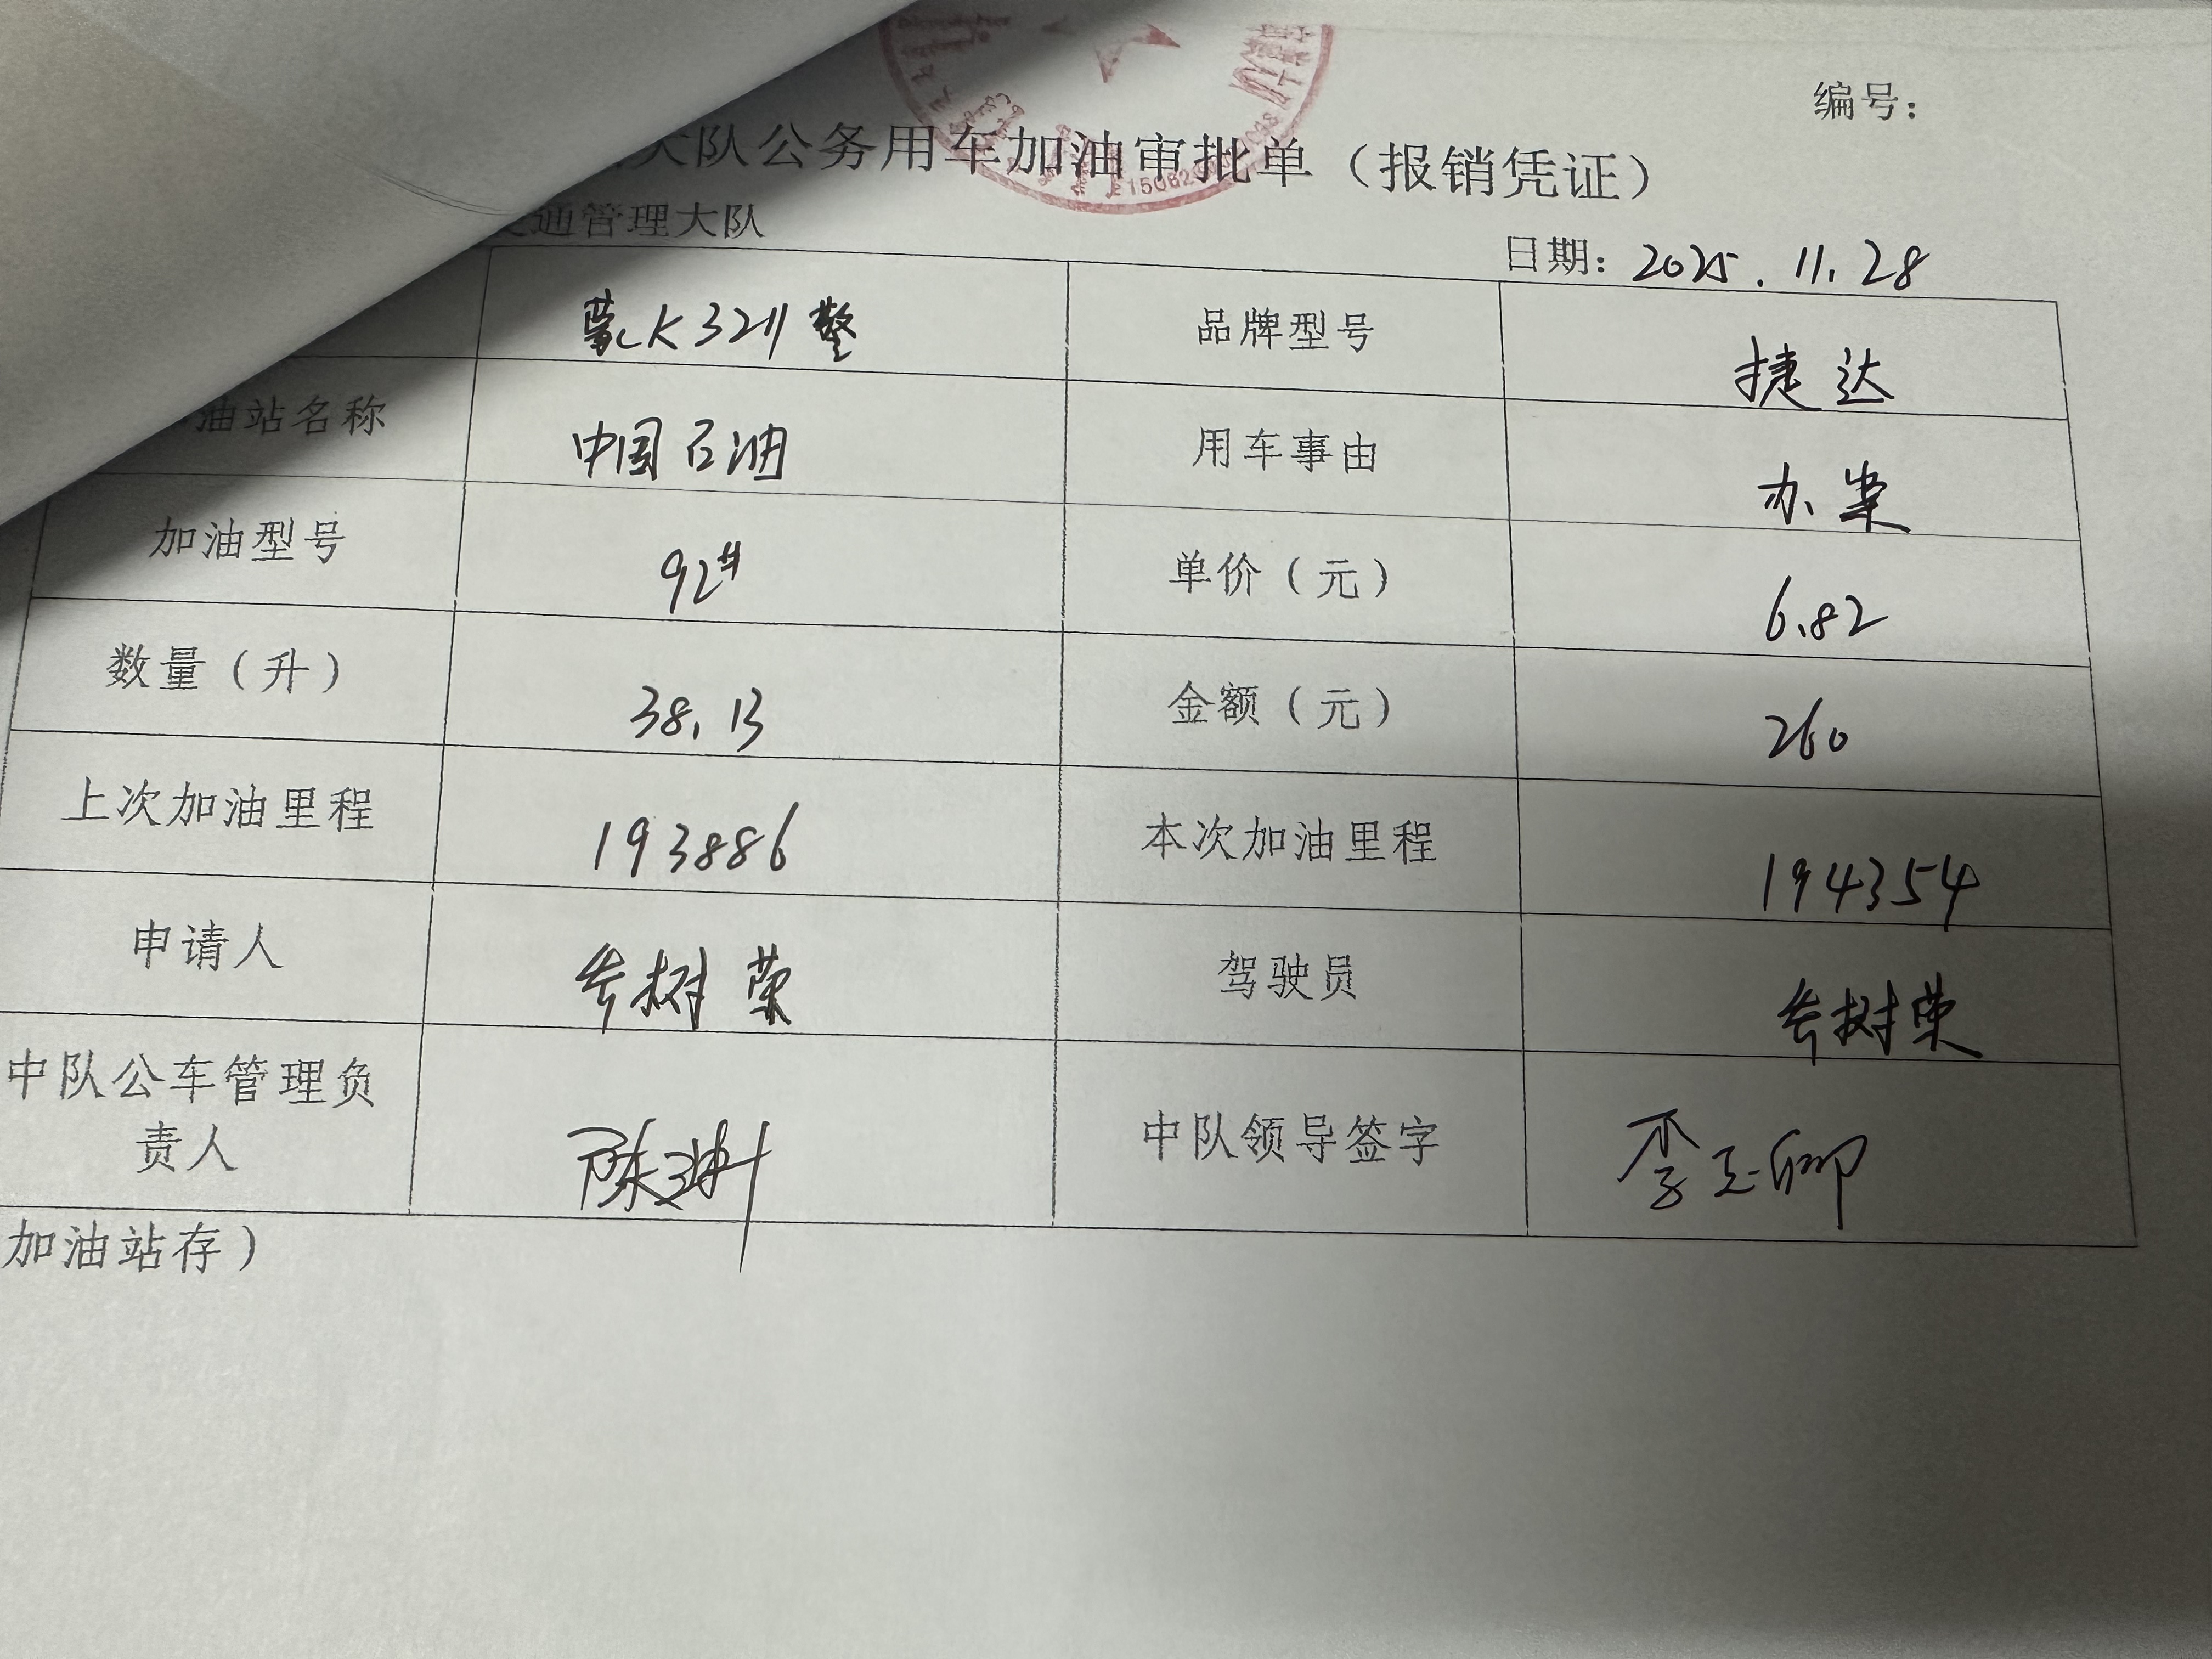 编号：
大队公务用车加油审批单（报销凭证）
交通管理大队 日期：2025.11.28
蒙CK3211警 品牌型号 捷达
油站名称 中国石油 用车事由 办案
加油型号 92# 单价（元） 6.82
数量（升） 38.13 金额（元） 260
上次加油里程 193886 本次加油里程 194354
申请人 树荣 驾驶员 树荣
中队公车管理负
责人 陈 中队领导签字 李玉卿
加油站存）